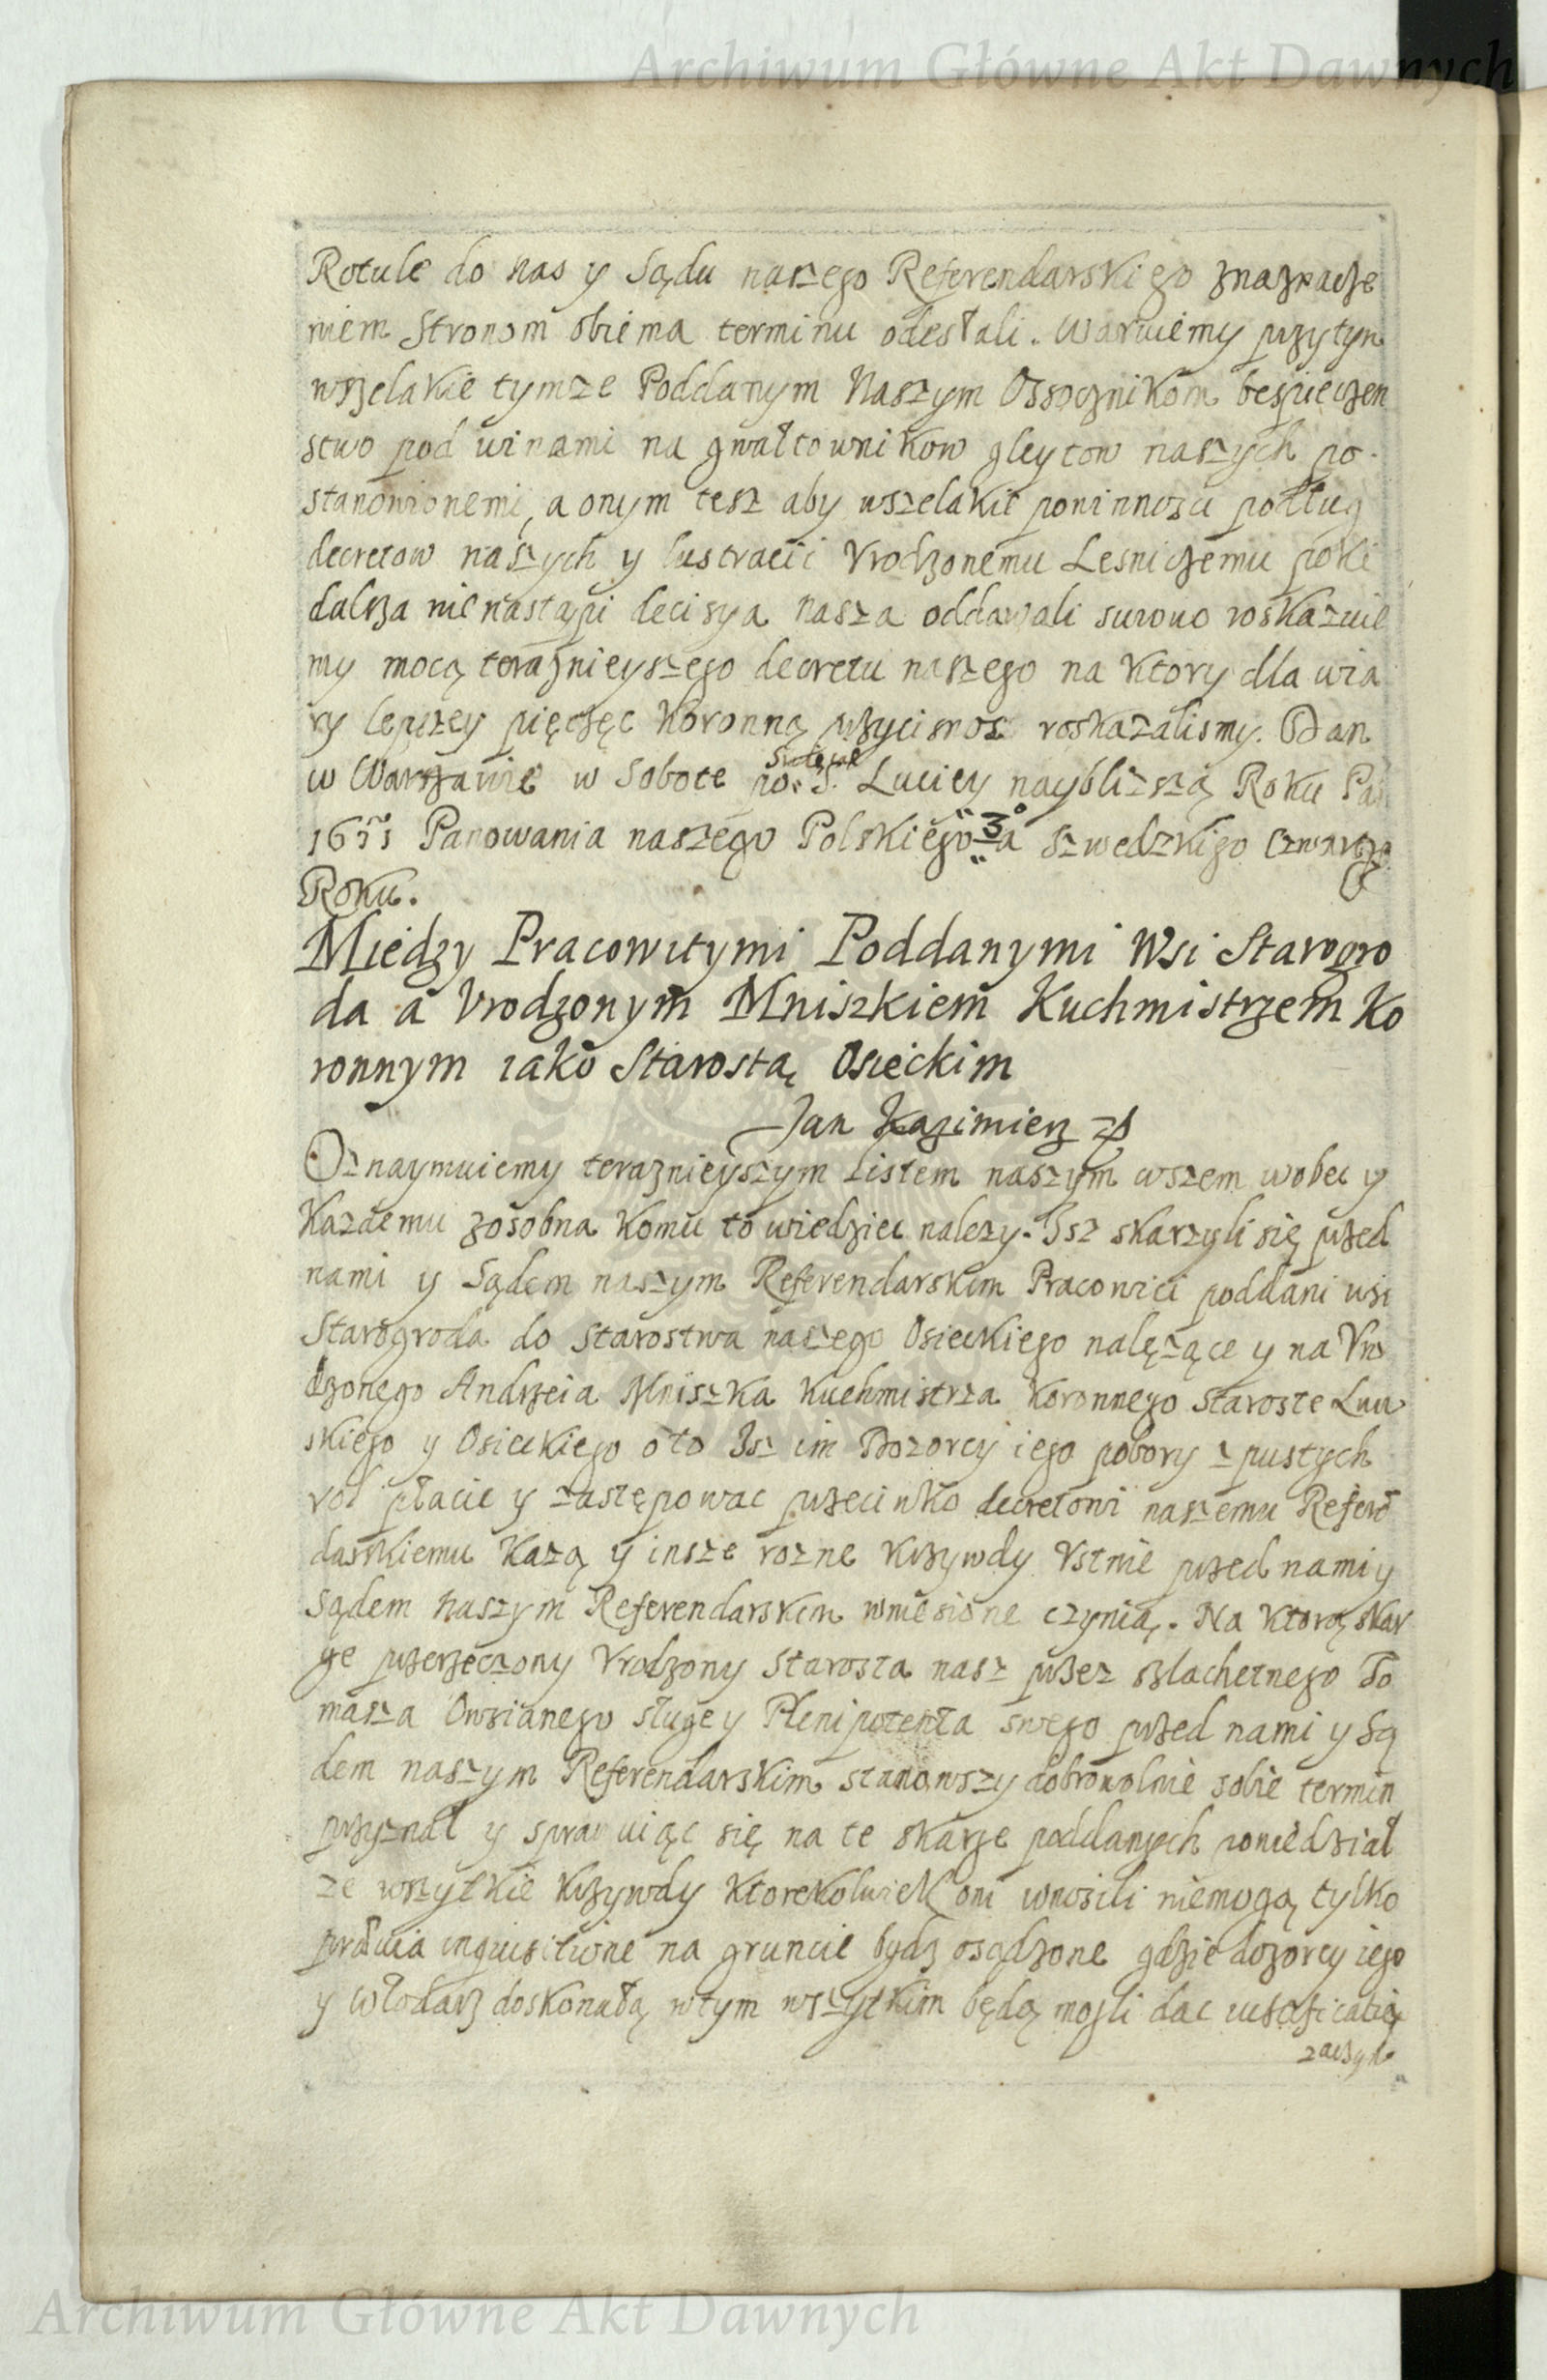 Archiwum Główne Akt Dawnych
Rotule do nas y Sądu naszego Referendarskiego z naznacze
niem Stronom obiema terminu odesłali. Waruiemy przytym
wszelakie tymze Poddanym Naszym Ossocznikom bespieczen
stwo pod winami na gwałtownikow gleytow naszych po-
stanowionemi, a onym tesz aby wszelakie powinnosci podług
decretow naszych y lustracii Vrodzonemu Lesniczemu poki
dalsza nie nastąpi decisya nasza oddawali surowo roskazuie
my mocą teraznieyszego decretu naszego na ktory dla wia
ry lepszey pięczęc Koronną przycisnoc roskazalismy. Dan
w Warszawie w Sobote po S. Swięcie Luciey naybliszszą Roku Pa
1651 Panowania naszego Polskiego 3º a szwedzkigo Czwartego
Roku.
Miedzy Pracowitymi Poddanymi Wsi Starogro
da a Vrodzonym Mniszkiem Kuchmistrzem Ko
ronnym iako Starostą Osieckim
Jan Kazimierz
Oznaymuiemy teraznieyszym listem naszym wszem wobec y
Kazdemu zosobna komu to wiedziec nalezy. Isz skarzyli się przed
nami y Sądem naszym Referendarskim Pracowici poddani wsi
Starogroda do starostwa naszego Osieckiego nalęzące y na Vro
dzonego Andrzeia Mniszka Kuchmistrza Koronnego Staroste
skiego y Osieckiego o to Isz im Dozorcy iego pobory z pustych
rol płacic y zastępowac przeciwko decretowi naszemu Referę
darskiemu kazą y insze rozne krzywdy Vstnie przed nami y
Sądem naszym Referendarskim wniesione czynią. Na ktorą skar
ge przerzeczony Vrodzony Starosta nasz przez szlachetnego To
masza Owsianego sługe y Plenipotenta swego przed nami y Są
dem naszym Referendarskim stanowszy dobrowolnie sobie termin
przyznał y sprawuiąc się na te skarge poddanych powiedział
ze wszytkie krzywdy ktorekolwiek oni wnosili niemogą tylko
prawia inquisitione na gruncie bydz osądzone gdzie dozorcy iego
y włodarz doskonałą wtym wszytkim będą mogli dac iustificatią
zaczym
Archiwum Główne Akt Dawnych